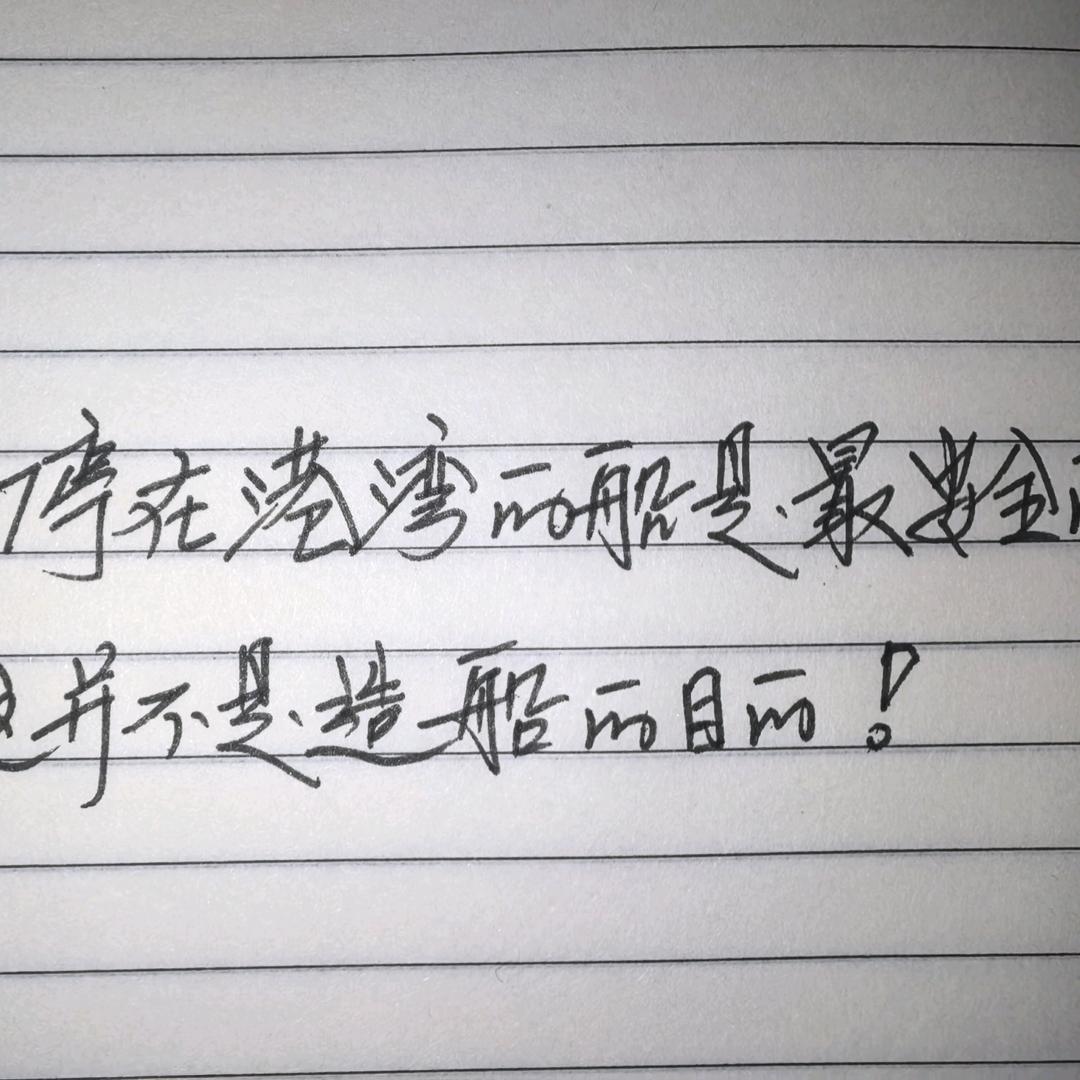 停在港湾的船是最安全
并不是造船的目的！